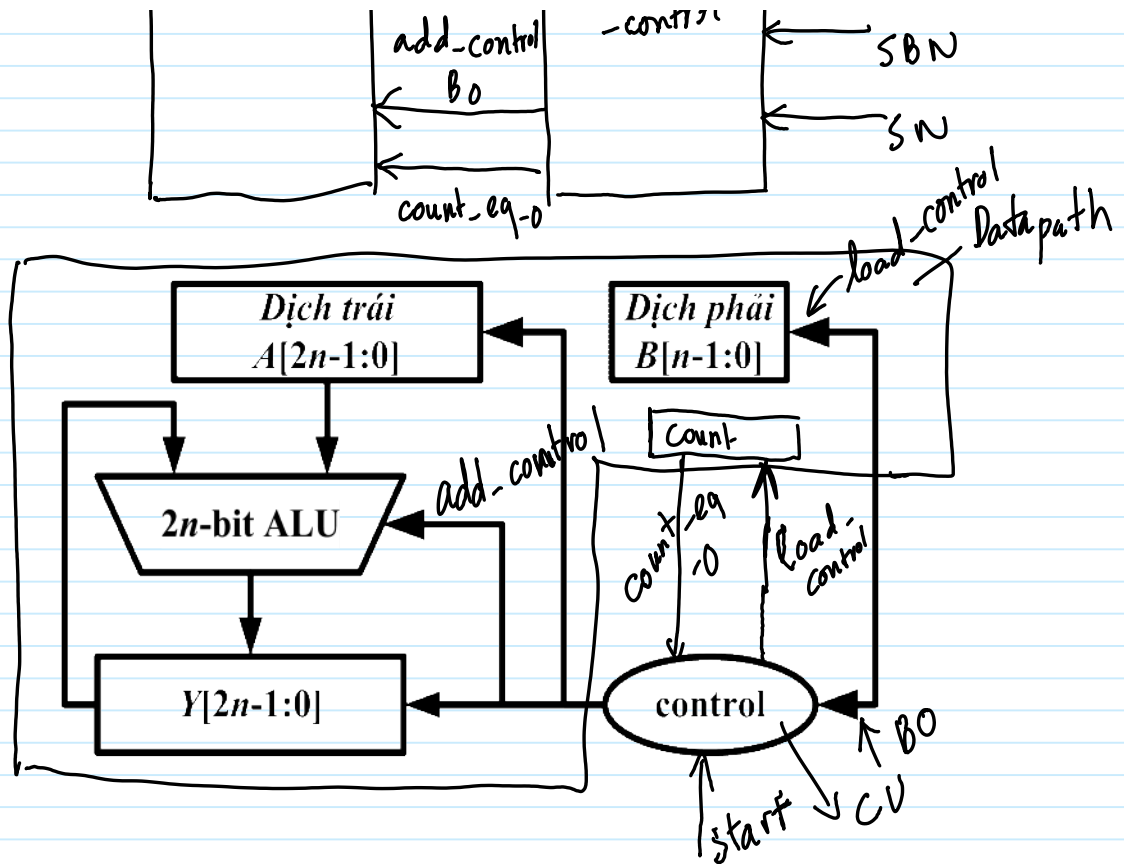 add_control
-control
SBN
B0
SN
count_eq_0
load_control
Datapath
Dịch trái
A[2n-1:0]
Dịch phải
B[n-1:0]
Count
add_control
2n-bit ALU
count_eq
-0
load-
control
Y[2n-1:0]
control
B0
start
CU